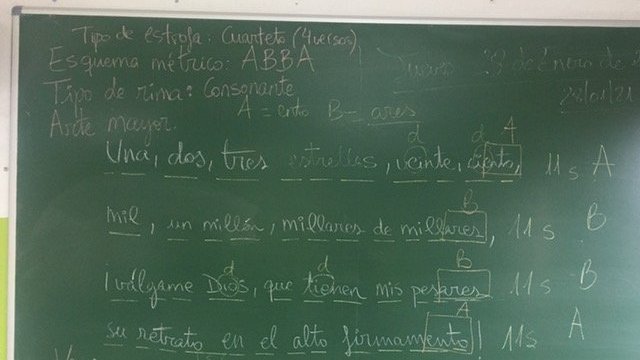 Tipo de estrofa: Cuarteto (4 versos)
Esquema métrico: ABBA
Jueves 28 de Enero de
Tipo de rima: Consonante
28/01/21
A = ento B = ares
Arte mayor.
d d A
Una, dos, tres estrellas, veinte, ciento, 11s A
B
mil, un millón, millares de millares, 11s B
d d B
¡válgame Dios, que tienen mis pesares 11s B
A
su retrato en el alto firmamento! 11s A